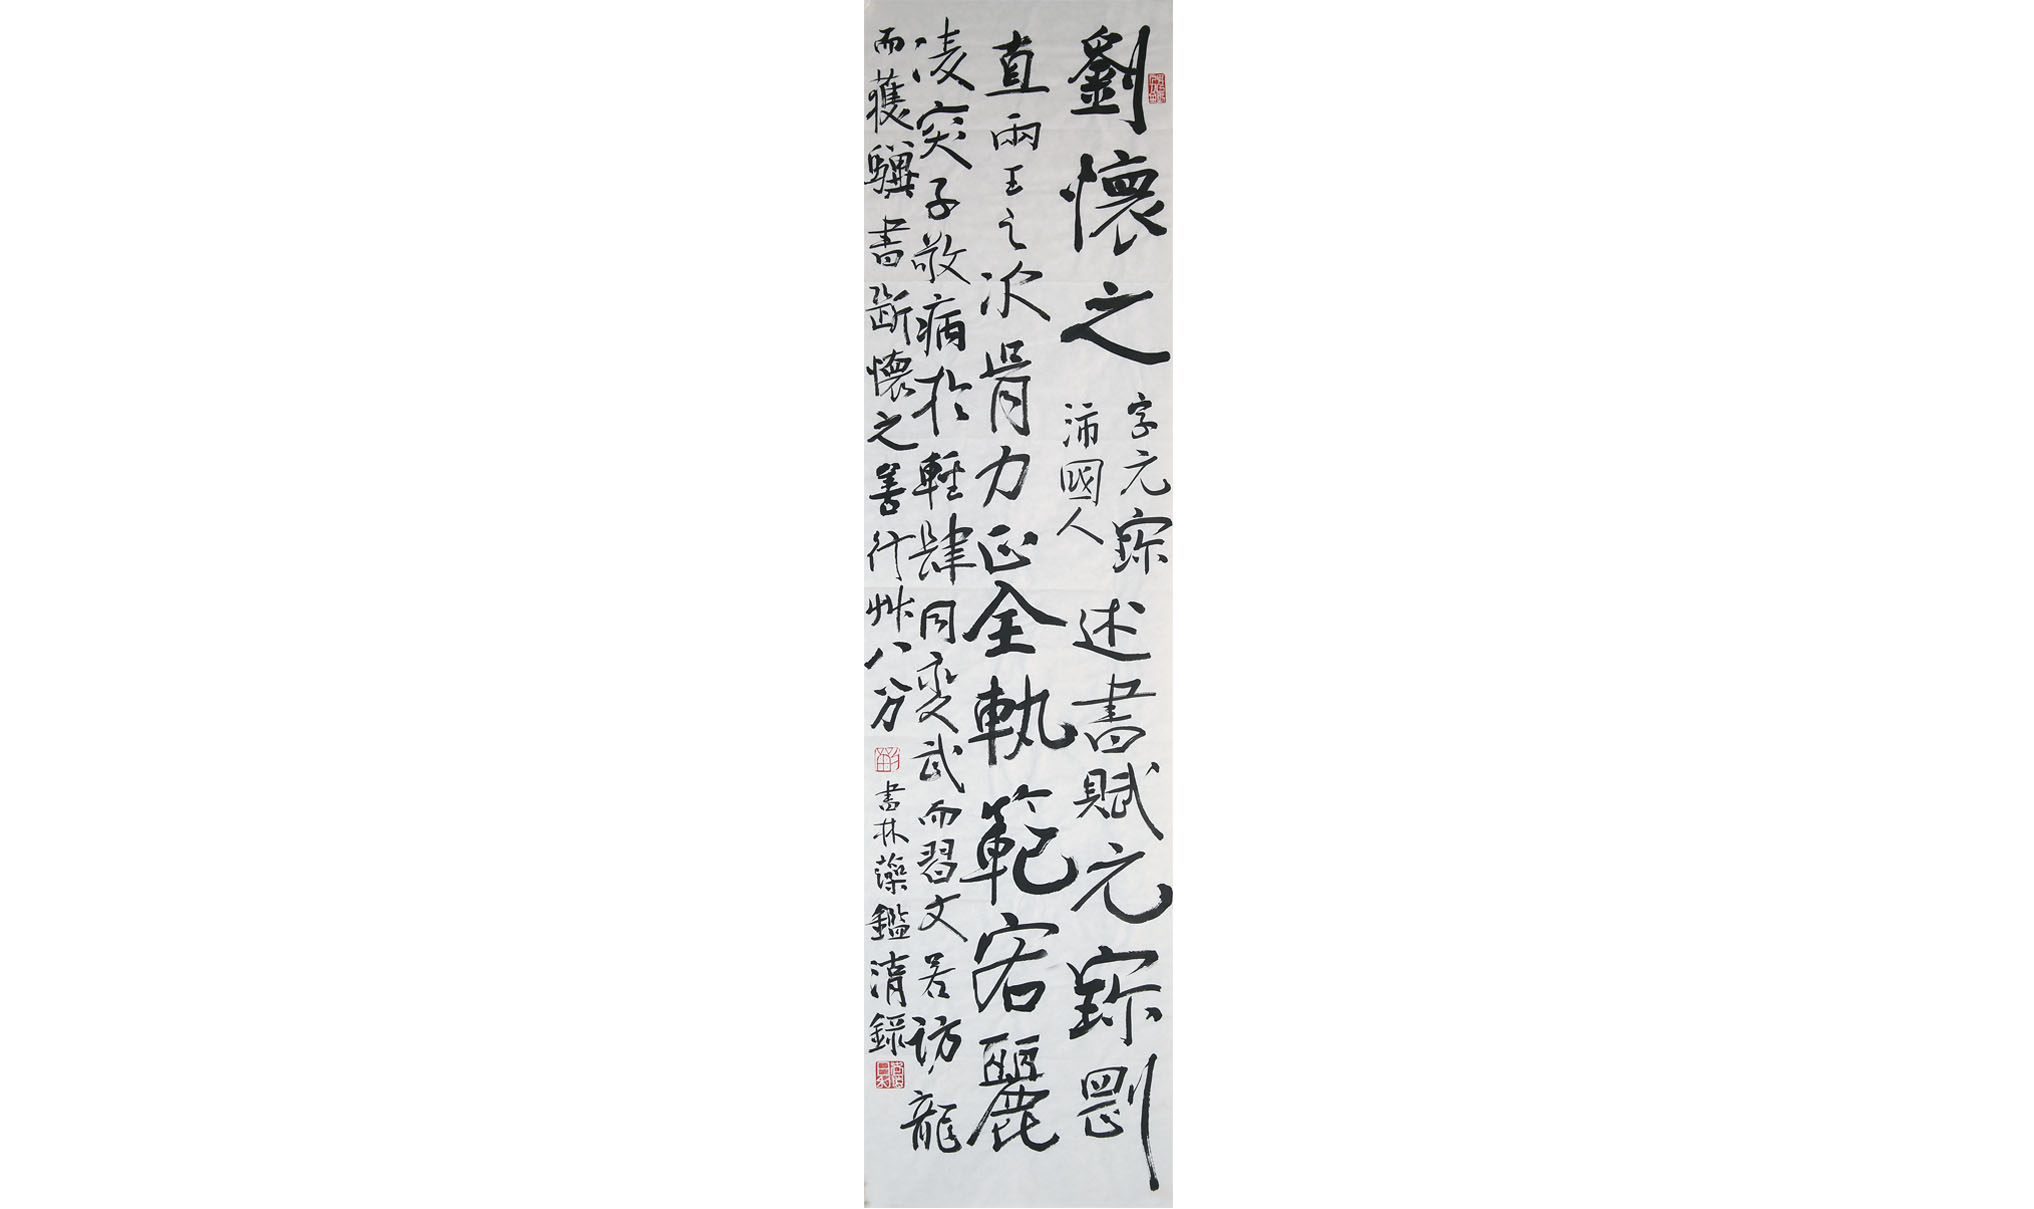 劉懷之
字元寳
沛國人
述書賦元寳剛
直兩王之次骨力正全軌範宏麗
凌突子敬病於輕肆同變武而習文若訪龍
而獲驥書斷懷之善行艸八分
書林藻鑑清録